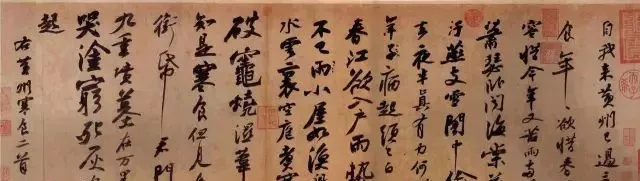 自我來黃州已過三
食年〻欲惜春
容惜今年又苦雨兩
蕭瑟臥聞海棠花
汙燕支雪闇中偷
去夜半真有力何
年子病起頭已白
春江欲入戶雨勢
不已雨小屋如漁
水雲裏空庖煮寒
破竈燒濕葦
知是寒食但見烏
銜帋君門
九重墳墓在万里
哭塗窮死灰
起
右黃州寒食二首